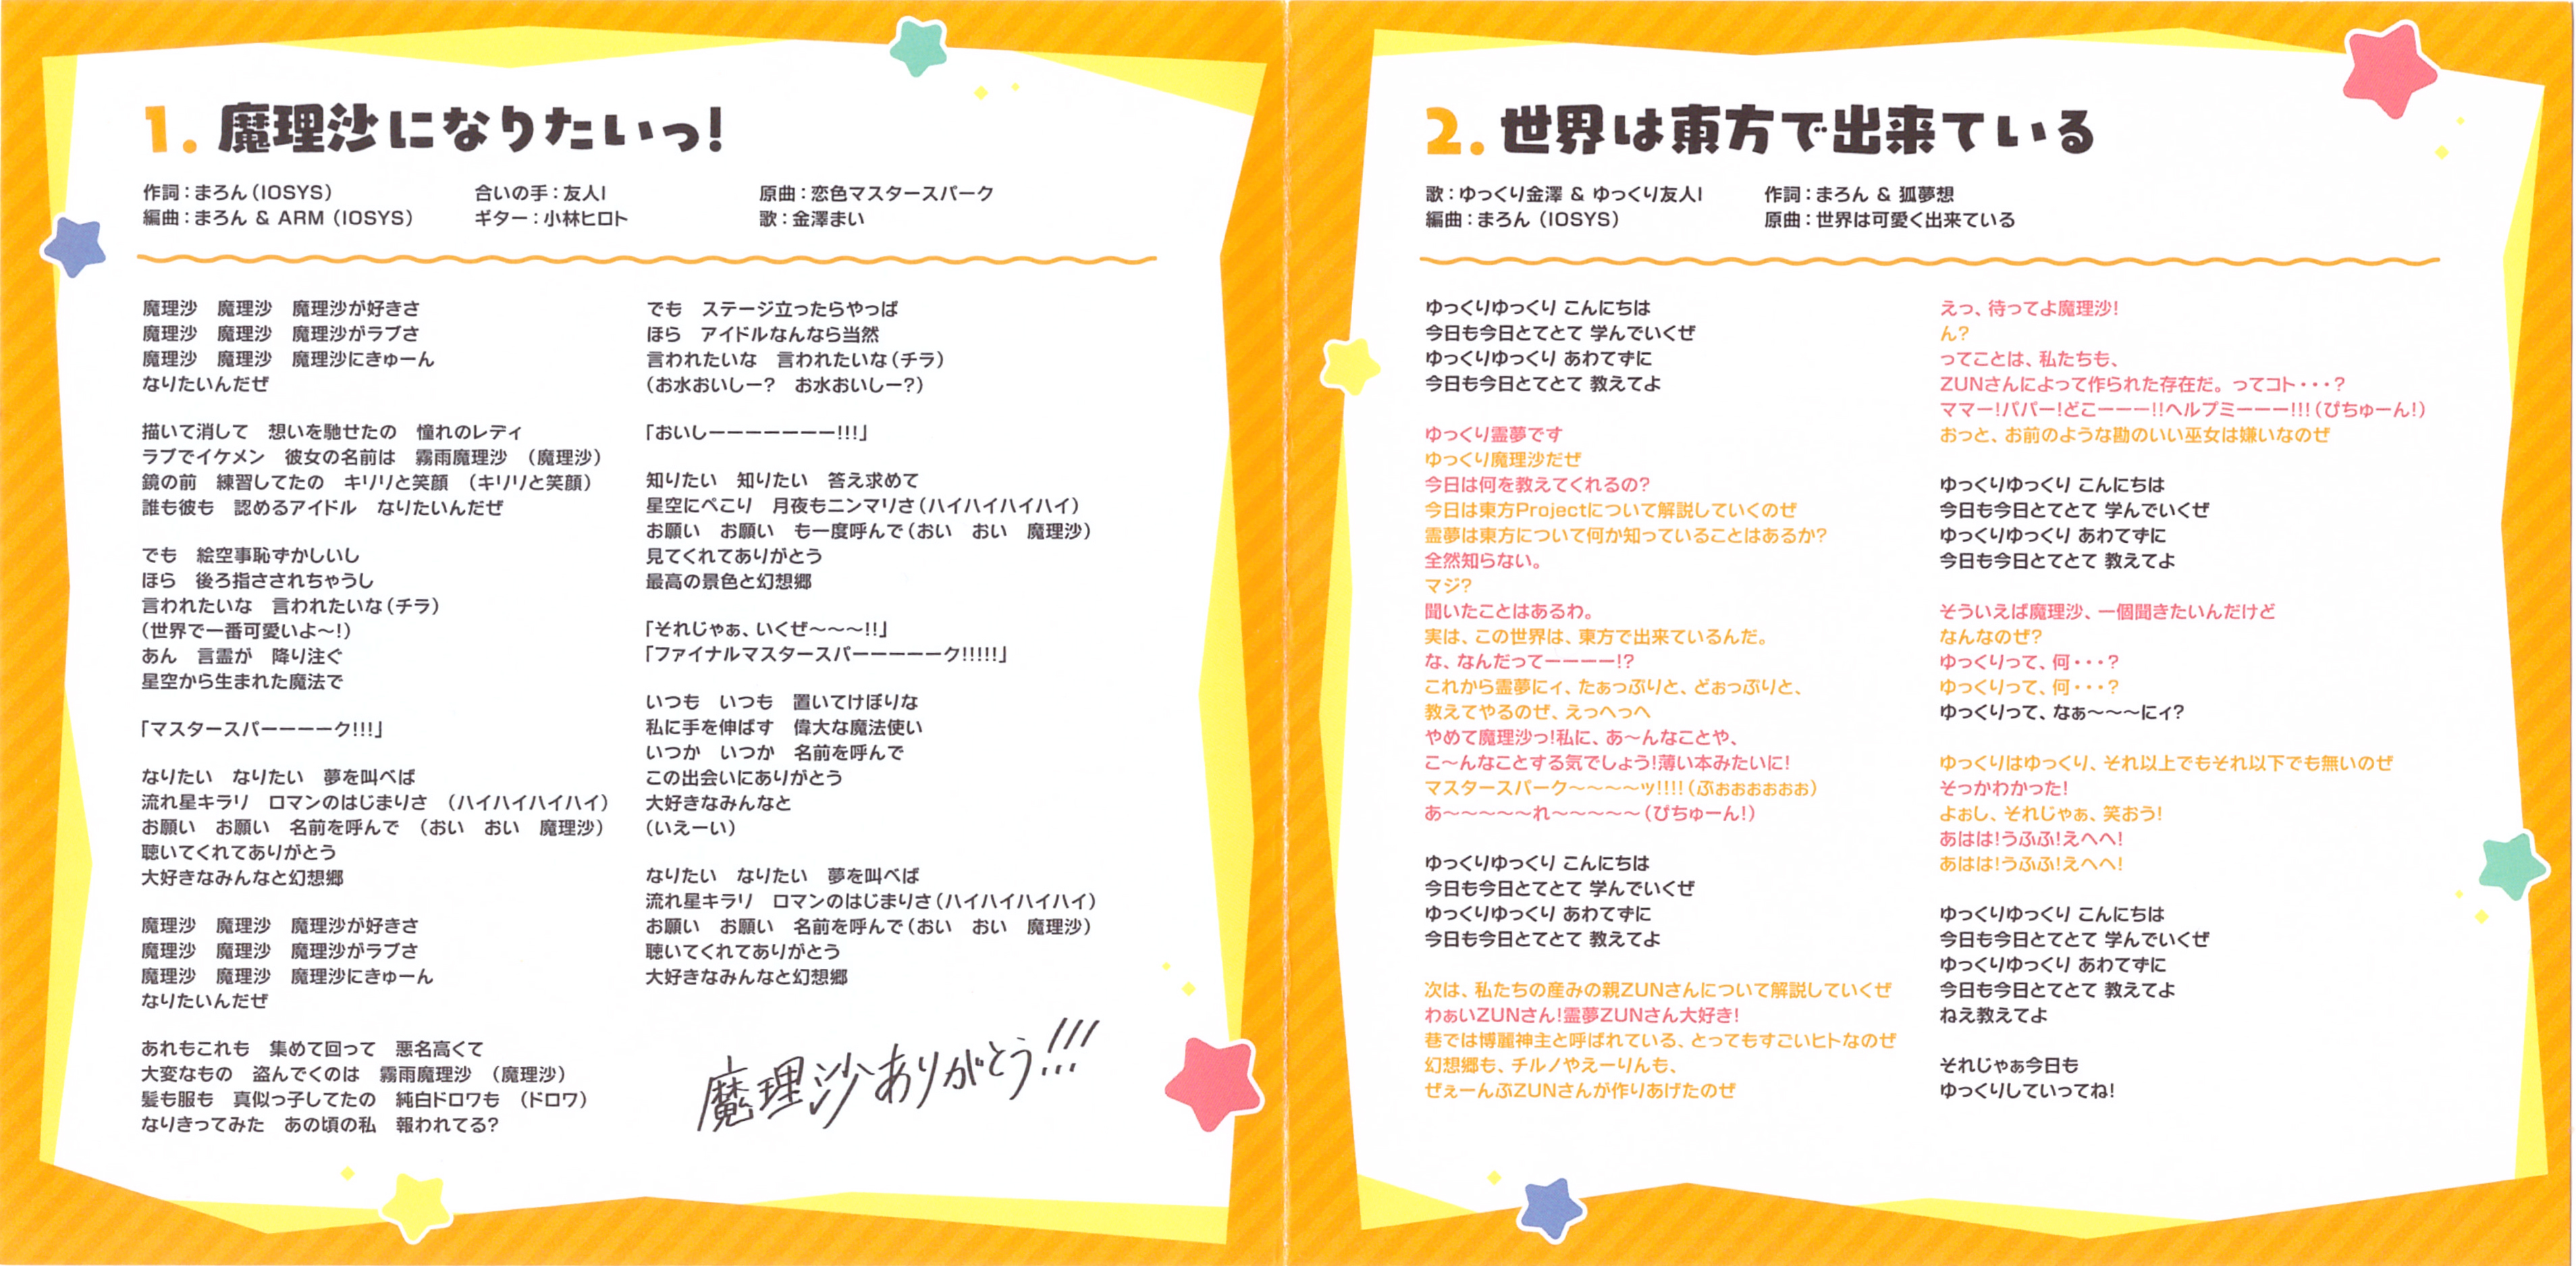 1. 魔理沙になりたいっ!
作詞：まろん（IOSYS）　合いの手：友人I　原曲：恋色マスタースパーク
編曲：まろん & ARM（IOSYS）　ギター：小林ヒロト　歌：金澤まい
魔理沙　魔理沙　魔理沙が好きさ
魔理沙　魔理沙　魔理沙がラブさ
魔理沙　魔理沙　魔理沙にきゅーん
なりたいんだぜ
描いて消して　想いを馳せたの　憧れのレディ
ラブでイケメン　彼女の名前は　霧雨魔理沙　（魔理沙）
鏡の前　練習してたの　キリリと笑顔　（キリリと笑顔）
誰も彼も　認めるアイドル　なりたいんだぜ
でも　絵空事恥ずかしいし
ほら　後ろ指さされちゃうし
言われたいな　言われたいな（チラ）
（世界で一番可愛いよ～!）
あん　言霊が　降り注ぐ
星空から生まれた魔法で
「マスタースパーーーーク!!!」
なりたい　なりたい　夢を叫べば
流れ星キラリ　ロマンのはじまりさ　（ハイハイハイハイ）
お願い　お願い　名前を呼んで　（おい　おい　魔理沙）
聴いてくれてありがとう
大好きなみんなと幻想郷
魔理沙　魔理沙　魔理沙が好きさ
魔理沙　魔理沙　魔理沙がラブさ
魔理沙　魔理沙　魔理沙にきゅーん
なりたいんだぜ
あれもこれも　集めて回って　悪名高くて
大変なもの　盗んでくのは　霧雨魔理沙　（魔理沙）
髪も服も　真似っ子してたの　純白ドロワも　（ドロワ）
なりきってみた　あの頃の私　報われてる?
でも　ステージ立ったらやっぱ
ほら　アイドルなんなら当然
言われたいな　言われたいな（チラ）
（お水おいしー?　お水おいしー?）
「おいしーーーーーーー!!!」
知りたい　知りたい　答え求めて
星空にぺこり　月夜もニンマリさ（ハイハイハイハイ）
お願い　お願い　も一度呼んで（おい　おい　魔理沙）
見てくれてありがとう
最高の景色と幻想郷
「それじゃぁ、いくぜ～～～!!」
「ファイナルマスタースパーーーーーク!!!!!」
いつも　いつも　置いてけぼりな
私に手を伸ばす　偉大な魔法使い
いつか　いつか　名前を呼んで
この出会いにありがとう
大好きなみんなと
（いえーい）
なりたい　なりたい　夢を叫べば
流れ星キラリ　ロマンのはじまりさ（ハイハイハイハイ）
お願い　お願い　名前を呼んで（おい　おい　魔理沙）
聴いてくれてありがとう
大好きなみんなと幻想郷
魔理沙ありがとう!!!
2. 世界は東方で出来ている
歌：ゆっくり金澤 & ゆっくり友人I　作詞：まろん & 狐夢想
編曲：まろん（IOSYS）　原曲：世界は可愛く出来ている
ゆっくりゆっくり こんにちは
今日も今日とてとて 学んでいくぜ
ゆっくりゆっくり あわてずに
今日も今日とてとて 教えてよ
ゆっくり霊夢です
ゆっくり魔理沙だぜ
今日は何を教えてくれるの?
今日は東方Projectについて解説していくのぜ
霊夢は東方について何か知っていることはあるか?
全然知らない。
マジ?
聞いたことはあるわ。
実は、この世界は、東方で出来ているんだ。
な、なんだってーーーー!?
これから霊夢にィ、たぁっぷりと、どぉっぷりと、
教えてやるのぜ、えっへっへ
やめて魔理沙っ!私に、あ～んなことや、
こ～んなことする気でしょう!薄い本みたいに!
マスタースパーク～～～～ッ!!!!（ぶぉぉぉぉぉぉ）
あ～～～～～れ～～～～～（ぴちゅーん!）
ゆっくりゆっくり こんにちは
今日も今日とてとて 学んでいくぜ
ゆっくりゆっくり あわてずに
今日も今日とてとて 教えてよ
次は、私たちの産みの親ZUNさんについて解説していくぜ
わぁいZUNさん!霊夢ZUNさん大好き!
巷では博麗神主と呼ばれている、とってもすごいヒトなのぜ
幻想郷も、チルノやえーりんも、
ぜぇーんぶZUNさんが作りあげたのぜ
えっ、待ってよ魔理沙!
ん?
ってことは、私たちも、
ZUNさんによって作られた存在だ。ってコト・・・?
ママー!パパー!どこーーー!!ヘルプミーーー!!!（ぴちゅーん!）
おっと、お前のような勘のいい巫女は嫌いなのぜ
ゆっくりゆっくり こんにちは
今日も今日とてとて 学んでいくぜ
ゆっくりゆっくり あわてずに
今日も今日とてとて 教えてよ
そういえば魔理沙、一個聞きたいんだけど
なんなのぜ?
ゆっくりって、何・・・?
ゆっくりって、何・・・?
ゆっくりって、なぁ～～～にィ?
ゆっくりはゆっくり、それ以上でもそれ以下でも無いのぜ
そっかわかった!
よぉし、それじゃぁ、笑おう!
あはは!うふふ!えへへ!
あはは!うふふ!えへへ!
ゆっくりゆっくり こんにちは
今日も今日とてとて 学んでいくぜ
ゆっくりゆっくり あわてずに
今日も今日とてとて 教えてよ
ねえ教えてよ
それじゃぁ今日も
ゆっくりしていってね!